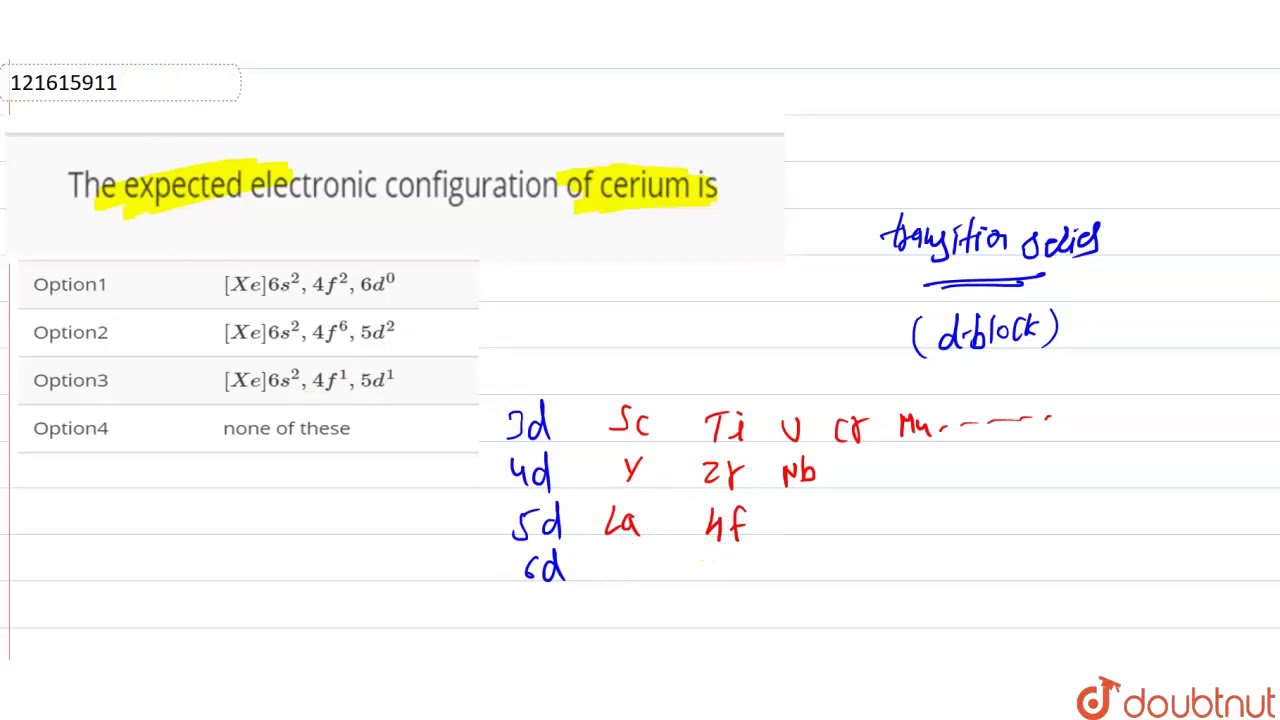 121615911
The expected electronic configuration of cerium is
Option1 [Xe]6s², 4f², 6d⁰
Option2 [Xe]6s², 4f⁶, 5d²
Option3 [Xe]6s², 4f¹, 5d¹
Option4 none of these
transition series
(d-block)
3d Sc Ti V Cr Mn - - - - -
4d Y Zr Nb
5d La Hf
6d
doubtnut